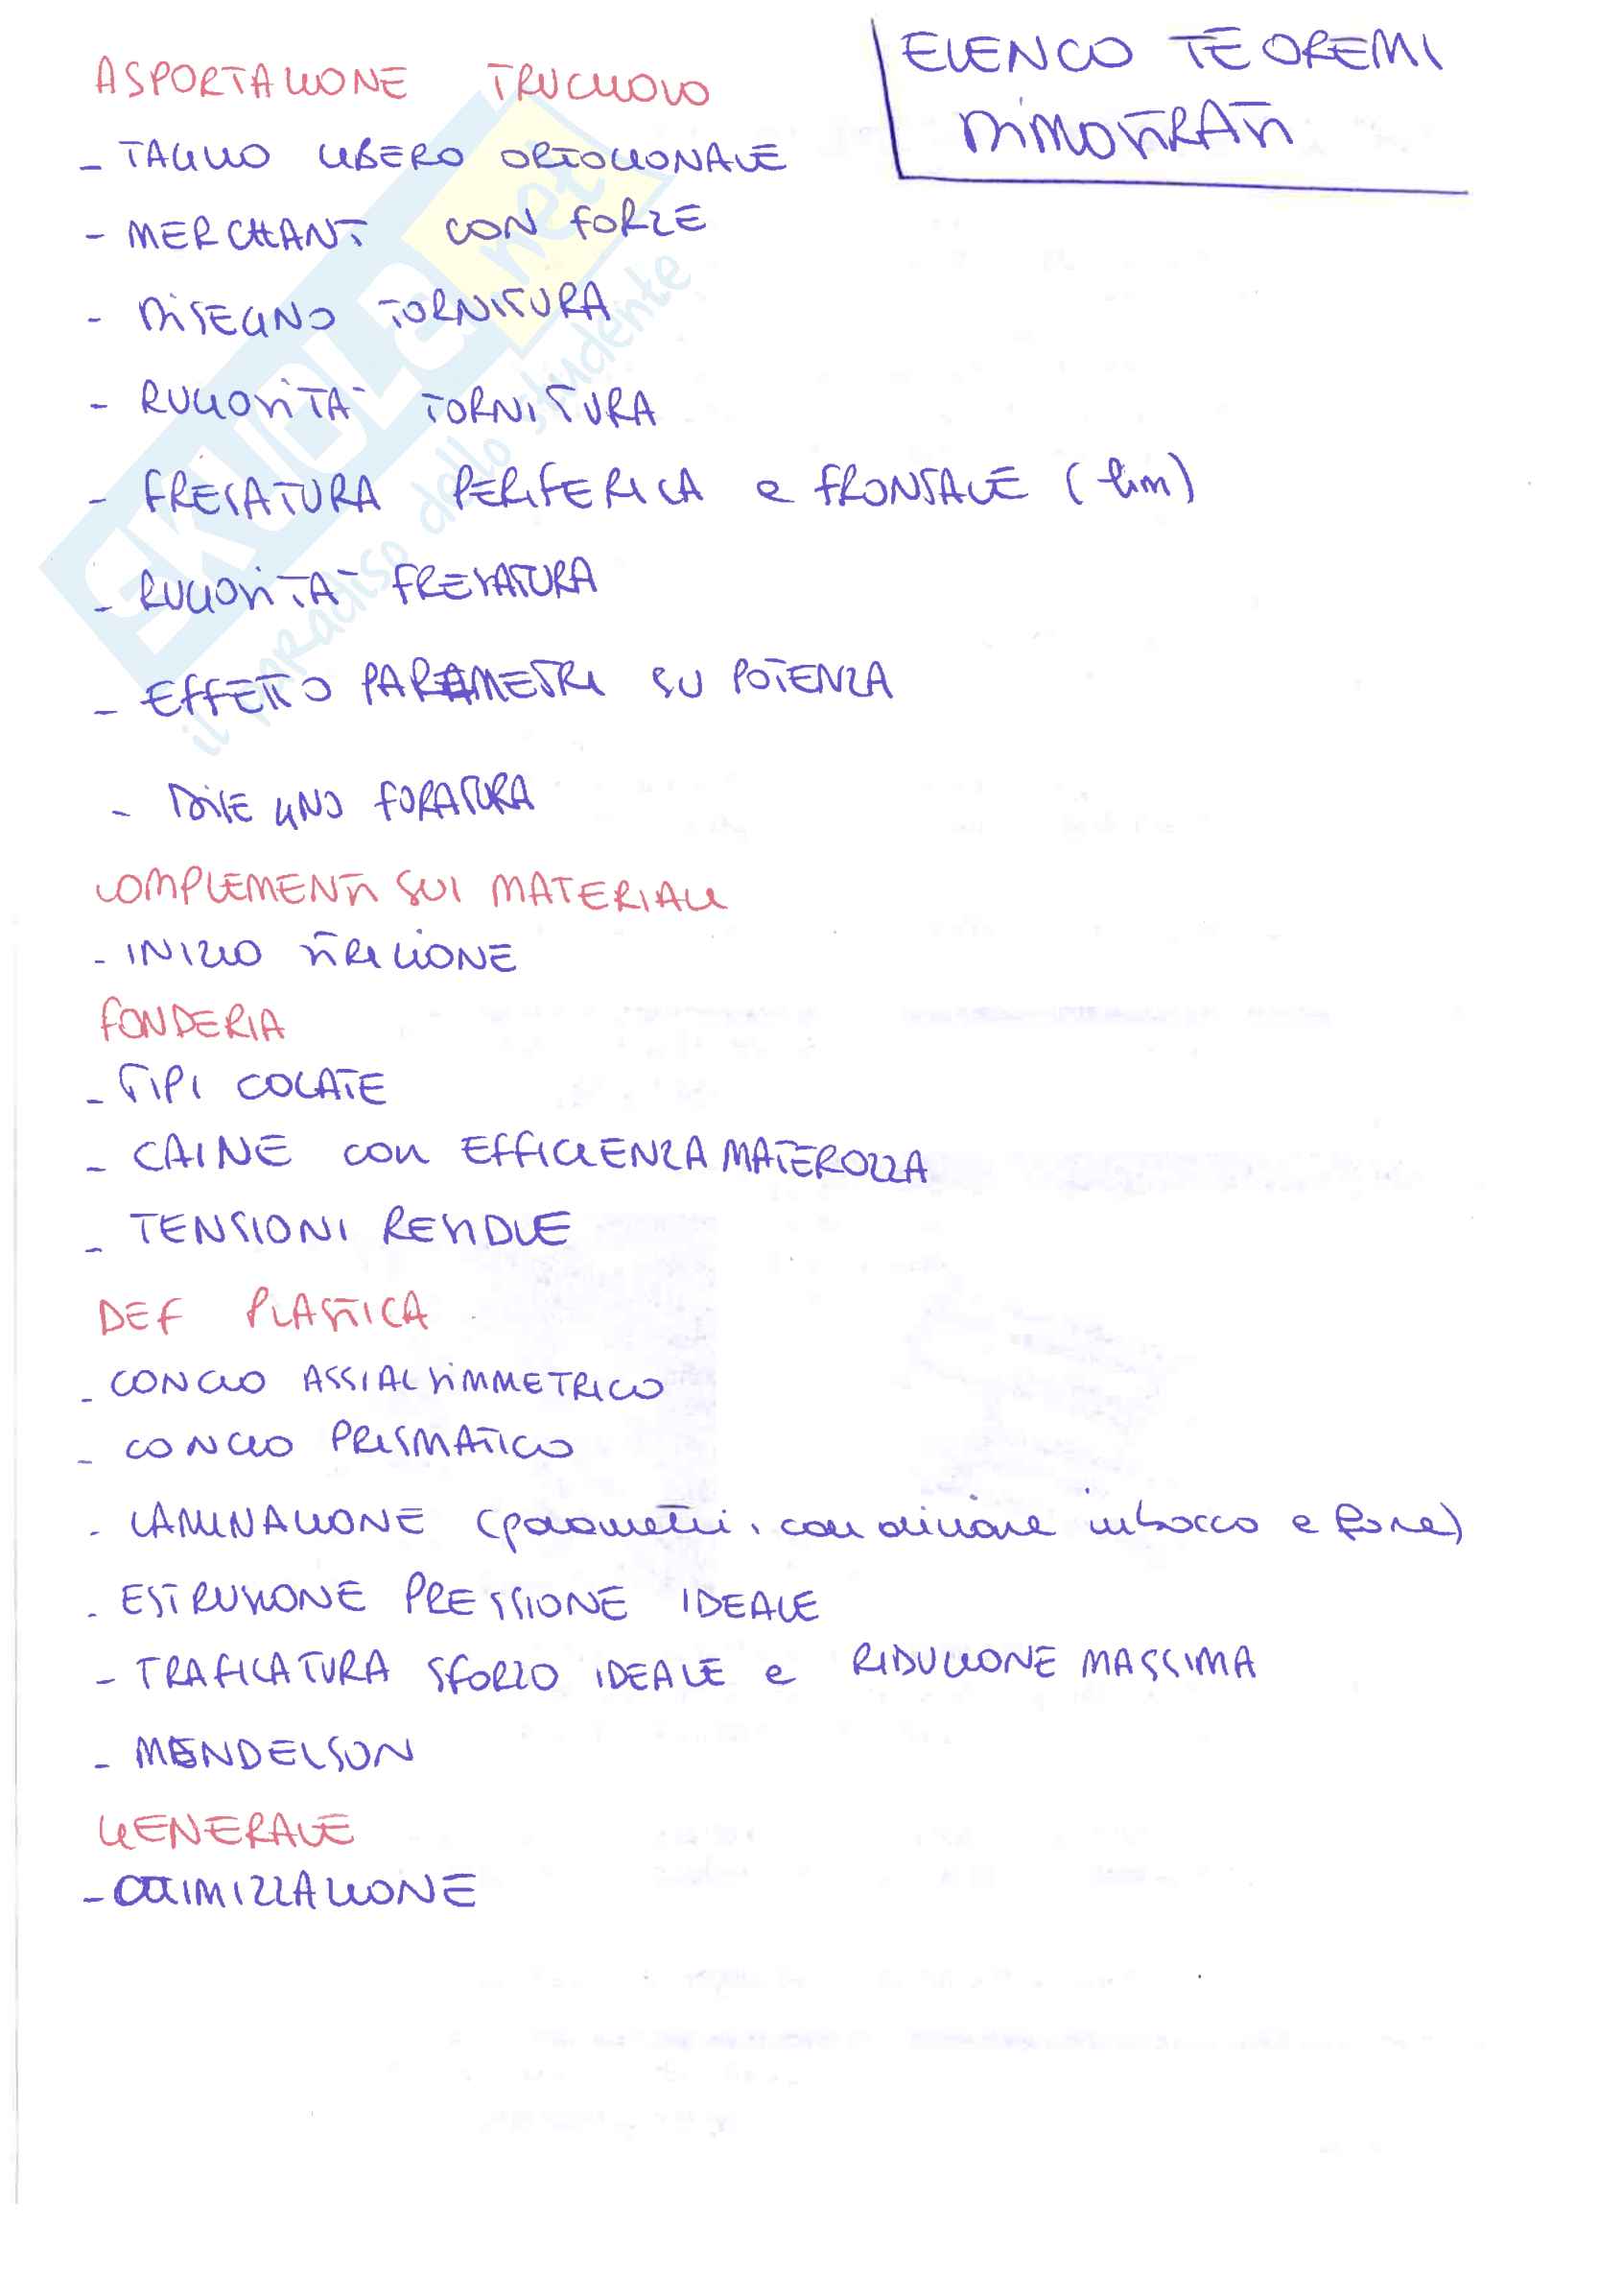 ELENCO TEOREMI
DIMOSTRATI
ASPORTAZIONE TRUCIOLO
- TAGLIO LIBERO ORTOGONALE
- MERCHANT CON FORZE
- DISEGNO TORNITURA
- RUGOSITA' TORNITURA
- FRESATURA PERIFERICA e FRONTALE (lim)
- RUGOSITA' FRESATURA
- EFFETTO PARAMETRI SU POTENZA
- DISEGNO FORATURA
COMPLEMENTI SUI MATERIALI
- INIZIO STRIZIONE
FONDERIA
- TIPI COLATE
- CAINE con EFFICIENZA MATEROZZA
- TENSIONI RESIDUE
DEF PLASTICA
- CONCIO ASSIALSIMMETRICO
- CONCIO PRISMATICO
- LAMINAZIONE (parametri, condizione imbocco e forze)
- ESTRUSIONE PRESSIONE IDEALE
- TRAFILATURA SFORZO IDEALE e RIDUZIONE MASSIMA
- MENDELSON
GENERALE
- OTTIMIZZAZIONE
SKUOLA.net
il paradiso dello studente